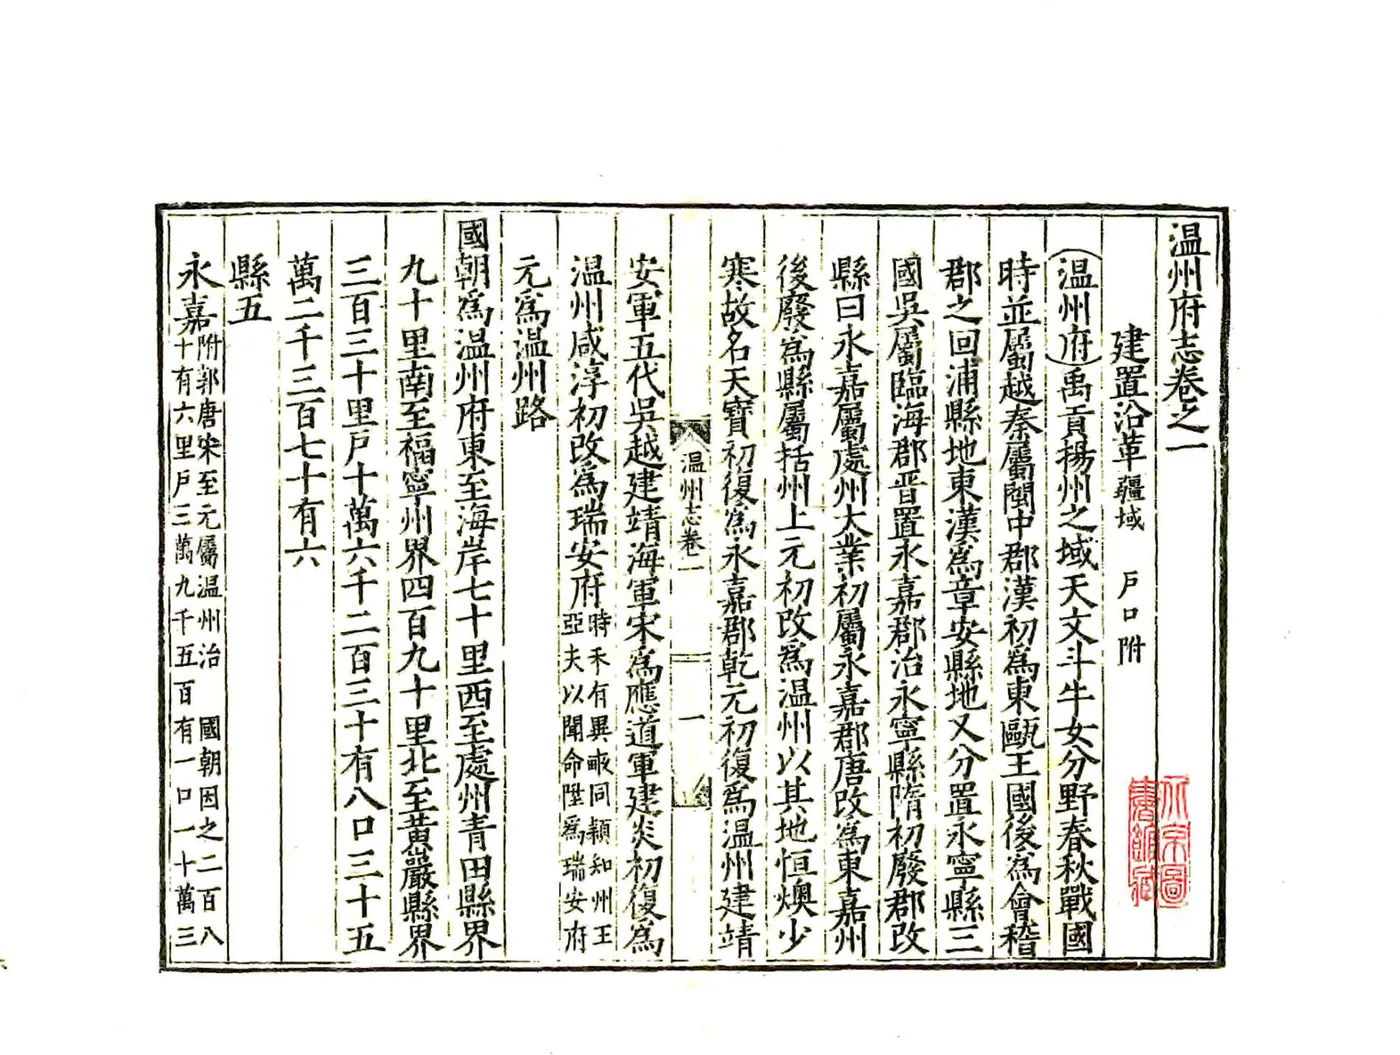 温州府志卷之一
建置沿革疆域 戶口附
温州府禹貢揚州之域天文斗牛女分野春秋戰國
時並屬越秦屬閩中郡漢初為東甌王國後為會稽
郡之回浦縣地東漢為章安縣地又分置永寧縣三
國吳屬臨海郡晋置永嘉郡治永寧縣隋初廢郡改
縣曰永嘉屬處州大業初屬永嘉郡唐改為東嘉州
後廢為縣屬括州上元初改為温州以其地恒燠少
寒故名天寶初復為永嘉郡乾元初復為温州建靖
温州志卷一
一
安軍五代吳越建靖海軍宋為應道軍建炎初復為
温州咸淳初改為瑞安府時禾有異畝同穎知州王
亞夫以聞命陞為瑞安府
元為温州路
國朝為温州府東至海岸七十里西至處州青田縣界
九十里南至福寧州界四百九十里北至黃嚴縣界
三百三十里戶十萬六千二百三十有八口三十五
萬二千三百七十有六
縣五
永嘉附郭唐宋至元屬温州治 國朝因之二百八
十有六里戶三萬九千五百有一口一十萬三